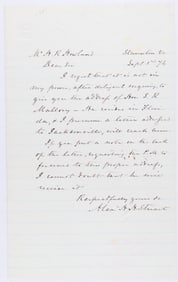 Mr A. R. Howland Staunton Va
Dear Sir Sept 5th 76
I regret that it is not in
my power, after diligent inquiry, to
give you the address of Hon S. R.
Mallory - He resides in Flori-
da, & I presume a letter address
to Jacksonville, will reach him.
If you put a note on the back
of the letter, requesting the P. M. to
forward to the proper address,
I cannot doubt that he will
receive it
Respectfully yours &c
Alex H. H. Stuart